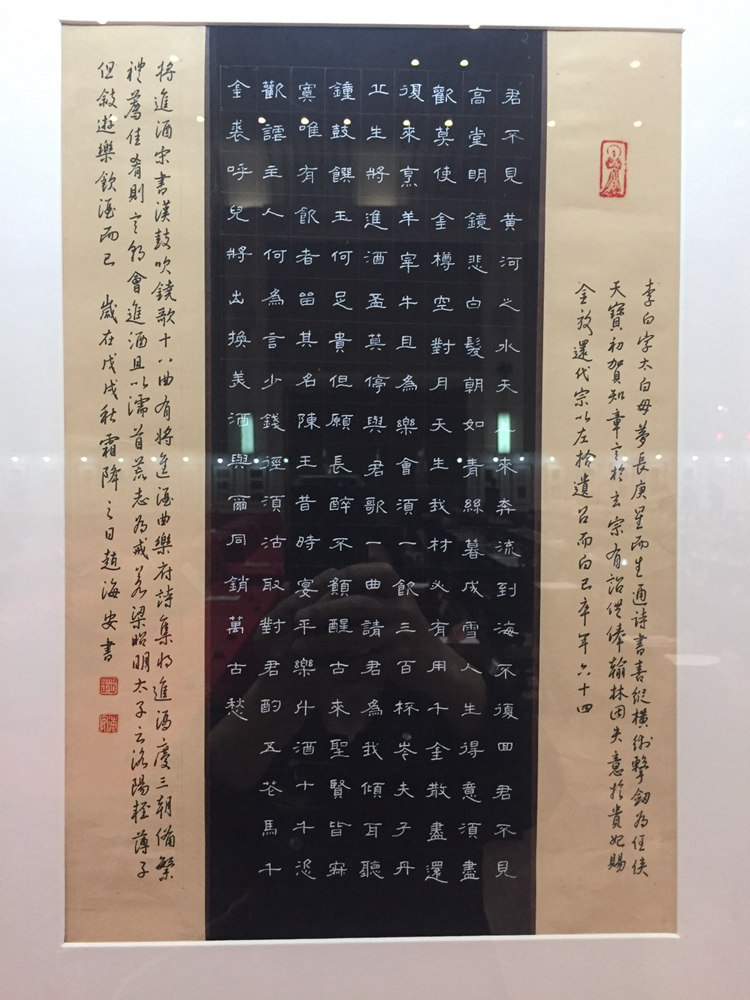 李白字太白母夢長庚星而生通詩書喜縱橫術擊劒為任俠
天寶初賀知章言於玄宗有詔供俸翰林因失意於貴妃賜
金放還代宗以左拾遺召而白已卒年六十四
君不見黄河之水天上來奔流到海不復回君不見
高堂明鏡悲白髮朝如青絲暮成雪人生得意須盡
歡莫使金樽空對月天生我材必有用千金散盡還
復來烹羊宰牛且為樂會須一飲三百杯岑夫子丹
丘生將進酒盃莫停與君歌一曲請君為我傾耳聽
鐘鼓饌玉何足貴但願長醉不願醒古來聖賢皆寂
寞唯有飲者留其名陳王昔時宴平樂斗酒十千恣
歡謔主人何為言少錢徑須沽取對君酌五花馬千
金裘呼兒將出換美酒與爾同銷萬古愁
將進酒宋書漢鼓吹鐃歌十八曲有將進酒曲樂府詩集將進酒慶三朝備繁
禮薦佳肴則言朝會進酒且以濡首荒志為戒若梁昭明太子云洛陽輕薄子
但敍遊樂飲酒而已 歲在戊戌秋霜降之日趙海安書